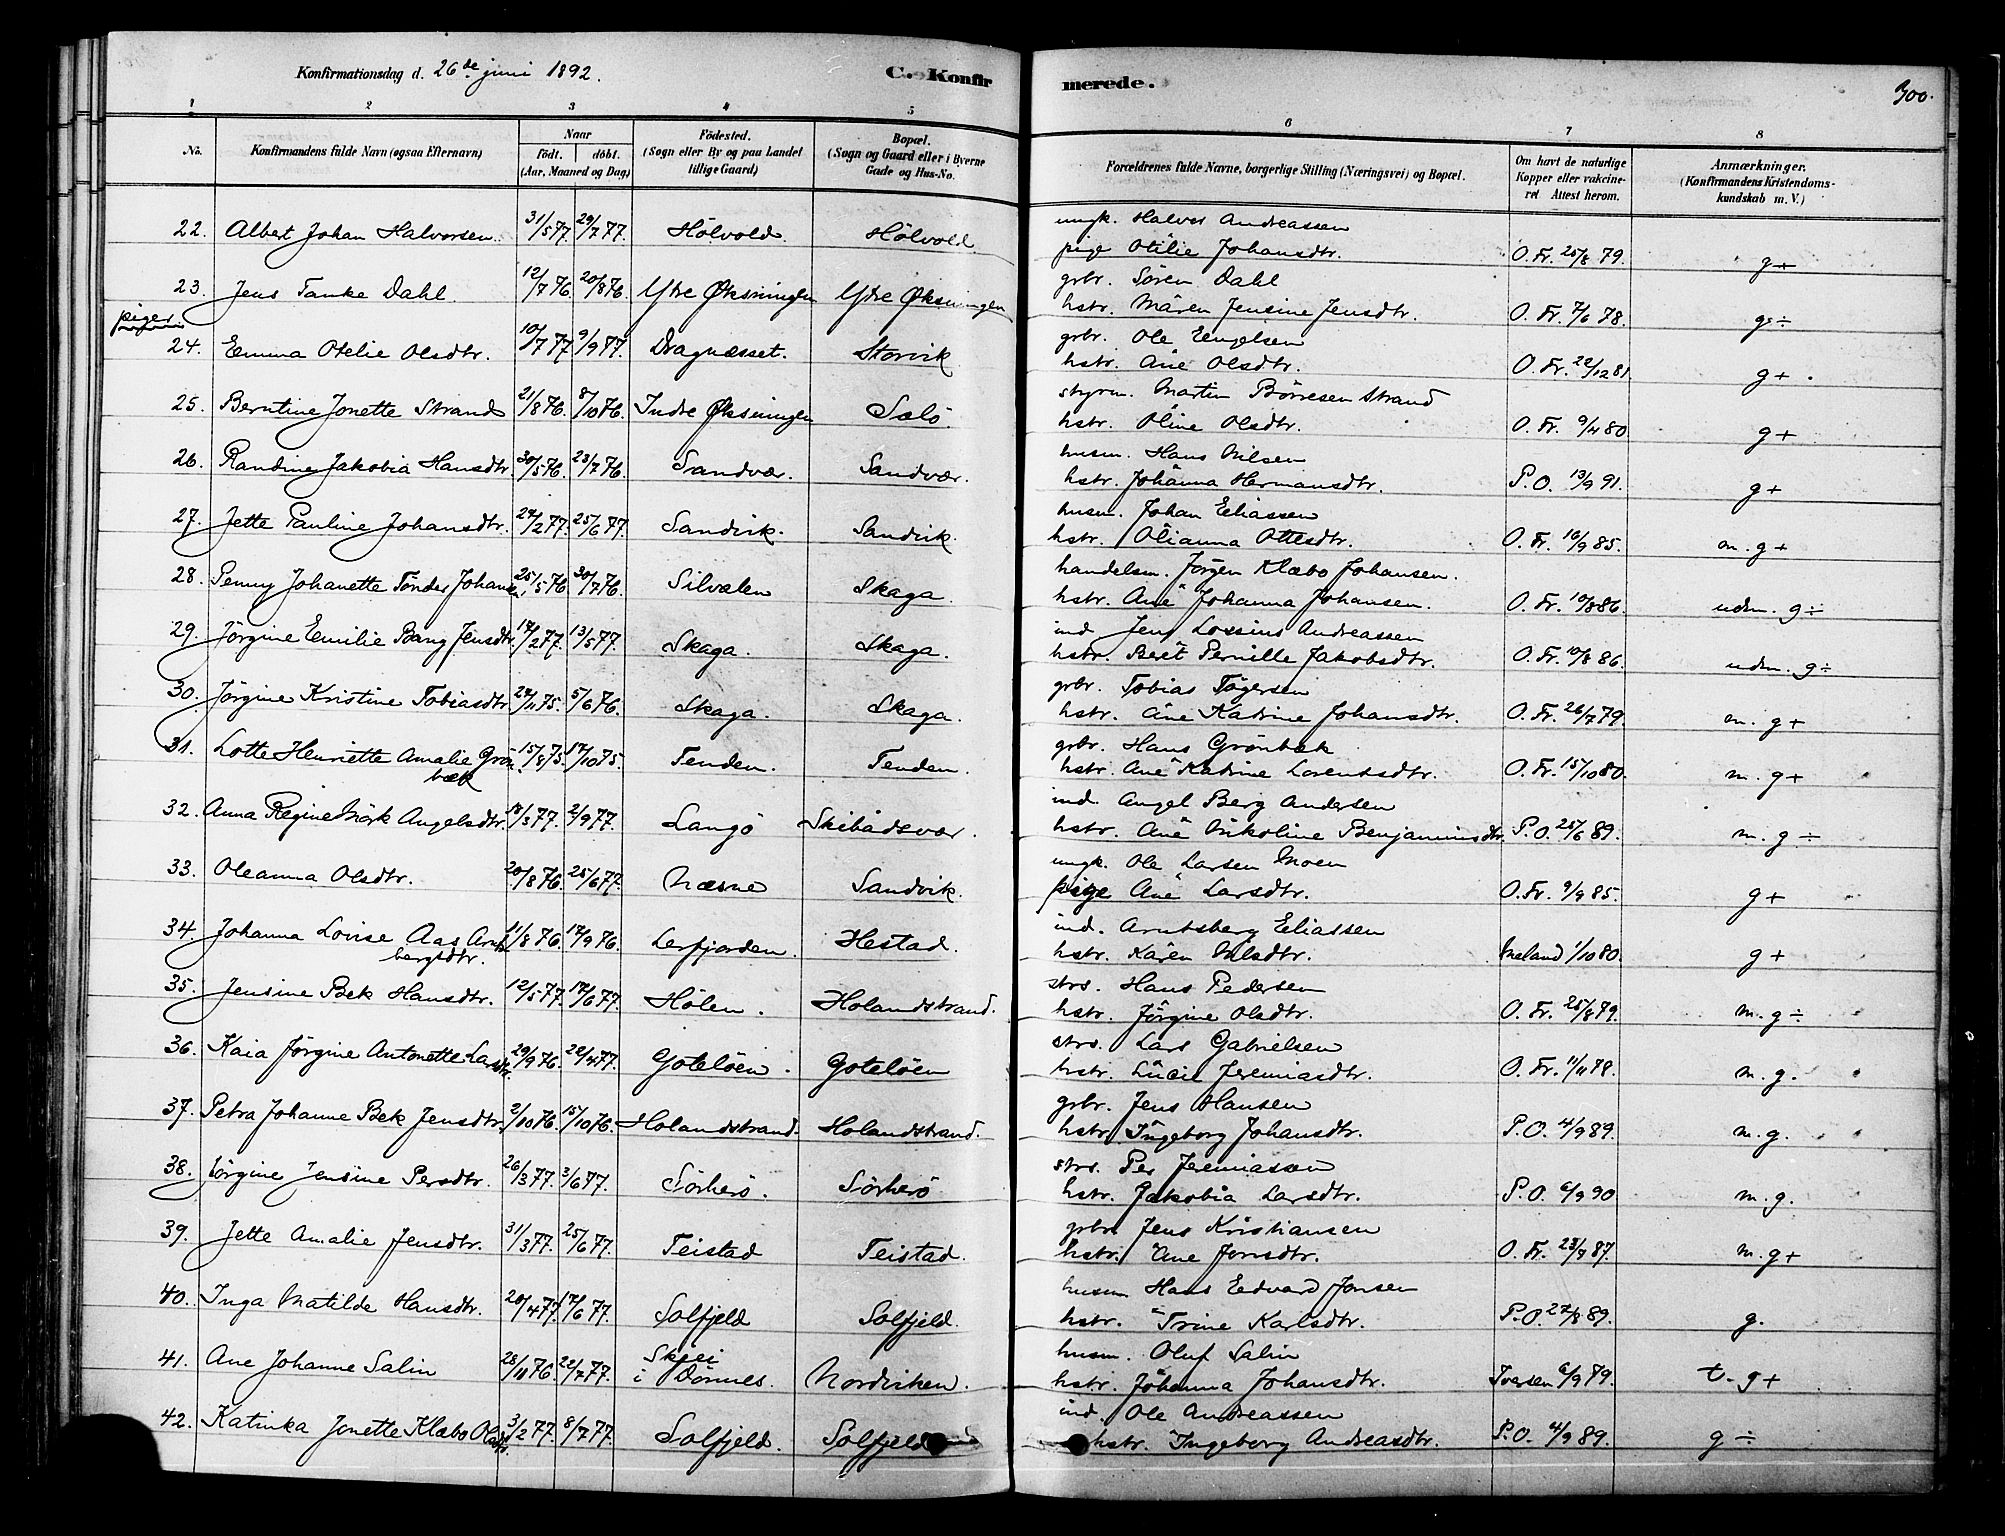 Konfirmationsdag d. 26de juni 1892. C. Konfirmerede. 300.
1 2 3 4 5 6 7 8
No. Konfirmandens fulde Navn (ogsaa Efternavn) Naar født. døbt. (Aar, Maaned og Dag) Fødested. (Sogn eller By og paa Landet tillige Gaard) Bopæl. (Sogn og Gaard eller i Byerne Gade og Hus-No. Forældrenes fulde Navne, borgerlige Stilling (Næringsvei) og Bopæl. Om havt de naturlige Kopper eller vakcineret Attest herom. Anmærkninger. (Konfirmandens Kristendomskundskab m. V.)
22. Albert Johan Halvorsen. 31/5 77. 29/7 77. Hölvold. Hölvold ungk. Halvor Andreassen
pige Otilie Johansdtr. O. Fr. 25/8 79. g+
23. Jens Tanke Dahl. 12/7 76. 20/8 76. Ytre Øksningen Ytre Øksningen grbr. Sören Dahl
hstr. Mären Jensine Jensdtr. O. Fr. 7/6 78. g÷
piger
24. Emma Otelie Olsdtr. 10/7 77. 9/9 77. Dragnæsset. Storvik grbr. Ole Engelsen
hstr. Ane Olsdtr. O. Fr. 22/12 81. g+
25. Berntine Jonette Strand 21/8 76. 8/10 76. Indre Øksningen Sælö. styrm. Martin Börresen Strand
hstr. Oline Olsdtr. O. Fr. 9/4 80. g+
26. Randine Jakobia Hansdtr. 30/5 76. 23/7 76. Sandvær. Sandvær. husm. Hans Nilsen
hstr. Johanna Hermansdtr. P. O. 13/9 91. g+
27. Jette Pauline Johansdtr. 24/2 77. 25/6 77. Sandvik. Sandvik. husm. Johan Eliassen
hstr. Olianna Ottesdtr. O. Fr. 16/9 85. m. g+
28. Penny Johanette Tönder Johansen 25/5 76. 30/7 76. Silvalen Skaga. handelsm. Jörgen Klæbo Johansen.
hstr. Ane Johanna Johansen. O. Fr. 10/8 86. udm. g÷
29. Jörgine Emilie Bang Jensdtr. 14/2 77. 13/5 77. Skaga. Skaga. ind. Jens Lossius Andreassen
hstr. Beret Pernille Jakobsdtr. O. Fr. 10/8 86. udm. g÷
30. Jörgine Kristine Tobiasdtr. 24/11 75. 5/6 76. Skaga. Skaga. grbr. Tobias Tögersen
hstr. Ane Katrine Johansdtr. O. Fr. 26/7 79. m. g+
31. Lotte Henriette Amalie Grön 15/8 75. 17/10 75. Tenden. Tenden. grbr. Hans Grönbæk
bæk hstr. Ane Katrine Lorentsdtr. O. Fr. 15/10 80. m. g+
32. Anna Regine Mörk Angelsdtr. 18/3 77. 2/9 77. Langö Skibådsvær. ind. Angel Berg Andersen
hstr. Ane Nikoline Benjaminsdtr. P. O. 25/6 89. m. g÷
33. Oleanna Olsdtr. 20/8 76. 25/6 77. Næsne Sandvik. ungk. Ole Larsen Moen
pige Ane Larsdtr. O. Fr. 9/9 85. g+
34. Johanna Lovise Aas Arnts 11/8 76. 17/9 76. Lerfjorden. Hestad. ind. Arntsberg Eliassen
bergsdtr. hstr. Karen Nilsdtr. Meland 1/10 80. g+
35. Jensine Bek Hansdtr. 12/5 77. 17/6 77. Hölen. Holandstrand. strs. Hans Pedersen
hstr. Jörgine Olsdtr. O. Fr. 25/8 79. m. g÷
36. Kaia Jörgine Antonette Larsdtr. 29/9 76. 22/4 77. Goteløen. Goteløen strs. Lars Gabrielsen
hstr. Lucie Jeremiasdtr. O. Fr. 11/11 78. m. g.
37. Petra Johanne Bek Jensdtr. 2/10 76. 15/10 76. Holandstrand. Holandstrand. grbr. Jens Hansen
hstr. Ingeborg Johansdtr. P. O. 4/9 89. m. g.
38. Jörgine Jensine Persdtr. 26/3 77. 3/6 77. Sörherö. Sörherö strs. Per Jeremiassen
hstr. Jakobia Larsdtr. P. O. 6/9 90 m. g.
39. Jette Amalie Jensdtr. 31/3 77. 25/6 77. Teistad Teistad. grbr. Jens Kristiansen
hstr. Ane Jonsdtr. O. Fr. 23/7 87. m. g+
40. Inga Matilde Hansdtr. 20/4 77. 17/6 77. Solfjeld Solfjeld. husm Hans Edvard Jonsen
hstr. Trine Karlsdtr. P. O. 27/8 89. g.
41. Ane Johanne Salin 28/11 76. 22/7 77. Skjei i Dönnes. Nordviken. husm. Oluf Salin
hstr. Johanna Johansdtr. Iversen 6/9 79. t. g+
42. Katinka Jonette Klæbo Olsdtr. 3/2 77. 8/7 77. Solfjeld. Solfjeld ind. Ole Andreassen
hstr. Ingeborg Andreasdtr. P. O. 4/9 89. g÷